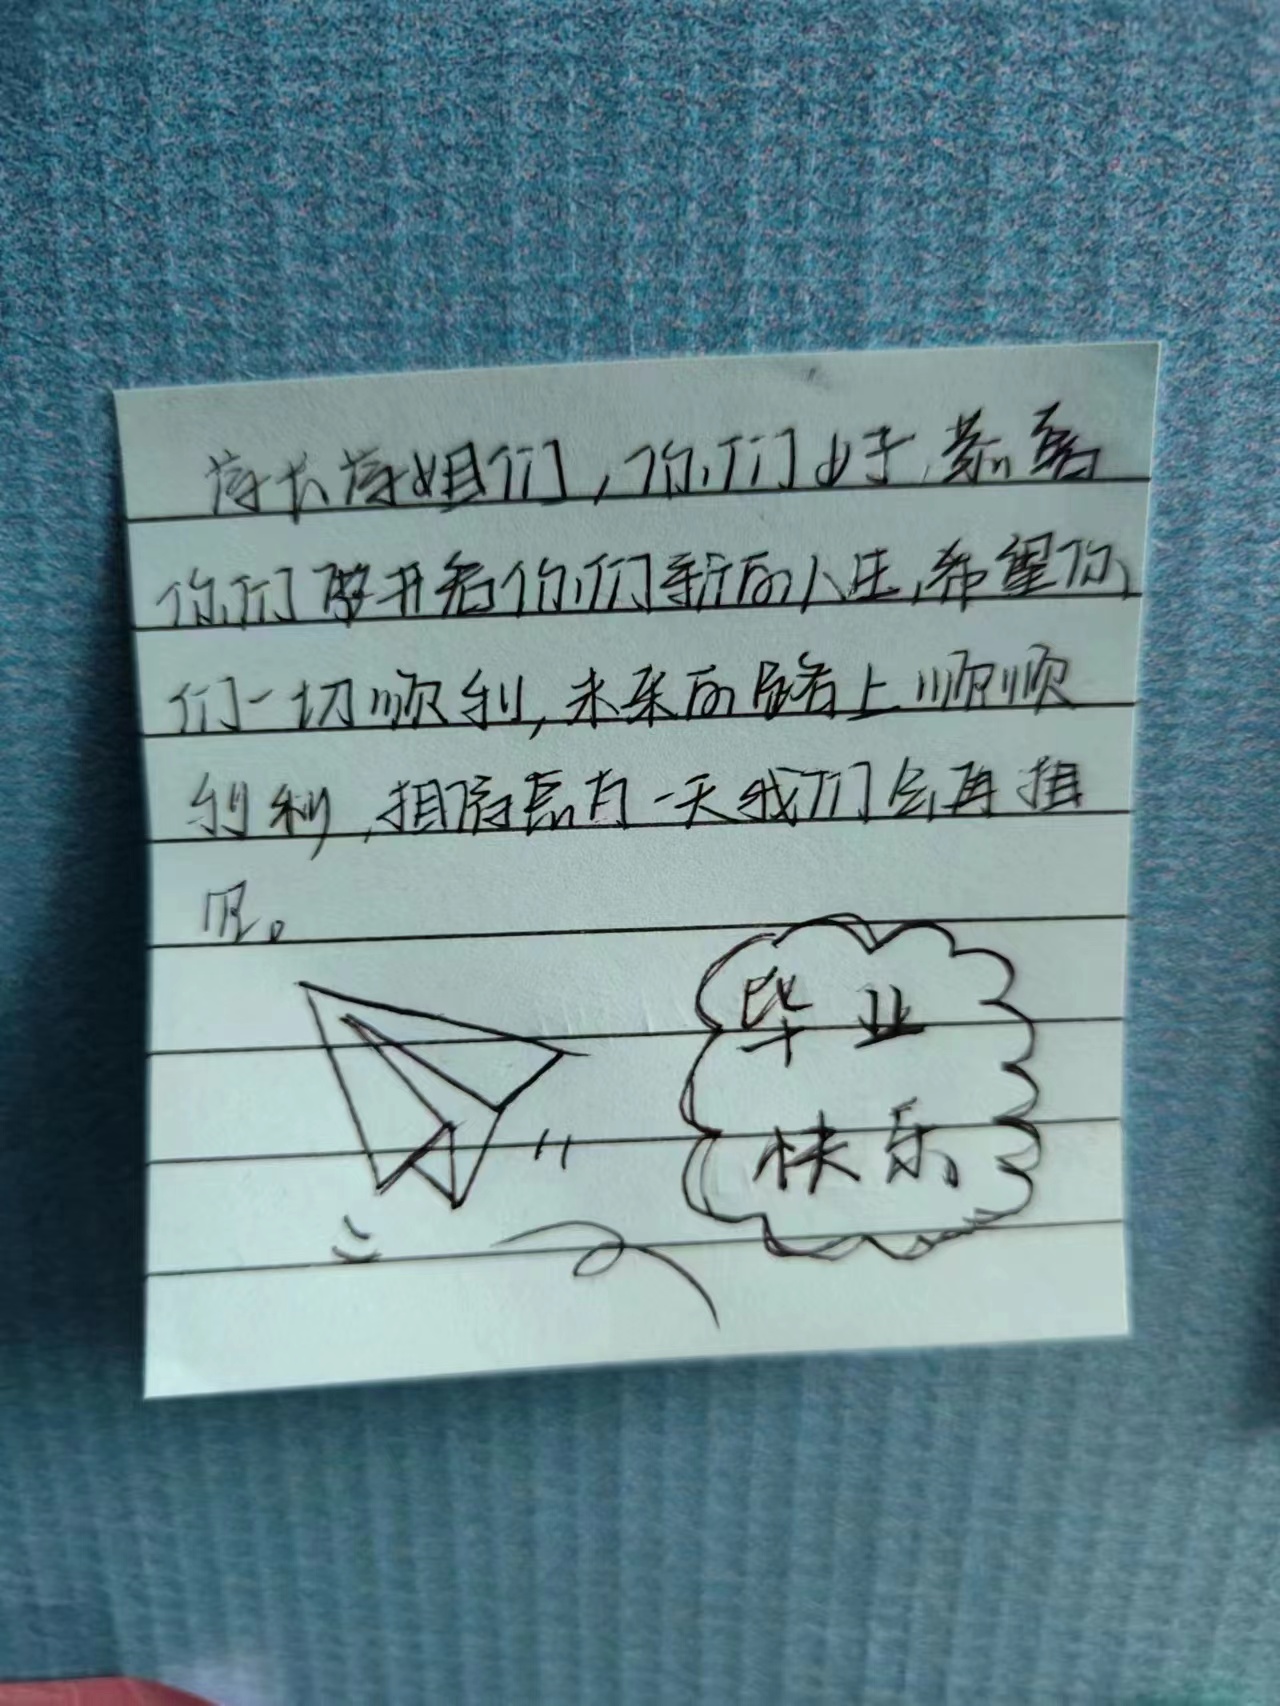 学长学姐们，你们
你们要开启你们新的人生，希望你
们一切顺利，未来的路上顺顺
利利，相信总有一天我们会再相
见。
毕业
快乐